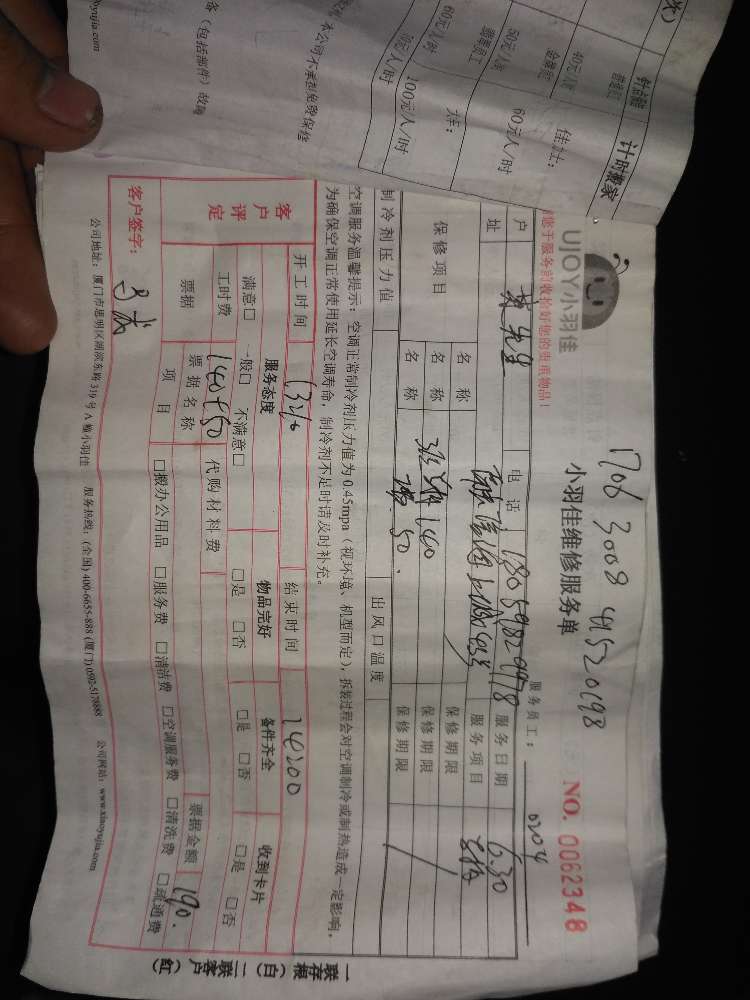 次）
计时搬家
住址：
40元/时
50元/人时
60元/人时
60元/人时
100元/人时
本公司不承担免费保修
备（包括部件）故障
xiaoyujia.com
1706 3008 41520198
UJOY小羽佳
小羽佳维修服务单
NO. 0062348
您于服务前收拾好您的贵重物品！
服务员工：
0204
户
黄先生
电话
18059829978
服务日期
6.30
址
服务项目
保修项目
名称
保修期限
名称
140
保修期限
名称
50.
保修期限
制冷剂压力值
出风口温度
空调服务温馨提示：空调正常制冷剂压力值为0.45mpa（视环境、机型而定），拆装过程会对空调制冷或制热造成一定影响，
为确保空调正常使用延长空调寿命，制冷剂不足时请及时补充。
开工时间
结束时间
14200
客户评定
服务态度
物品完好
备件齐全
收到卡片
满意□ 一般□ 不满意□
□是 □否
□是 □否
□是 □否
工时费
140+50
代购材料费
票据
票据名称
票据金额
190.
项目
□搬办公用品 □服务费 □清洁费 □空调服务费 □清洗费 □疏通费
客户签字：
公司地址：厦门市思明区湖滨东路319号A幢小羽佳 服务热线：(全国) 400-6655-888 (厦门) 0592-5178888 公司网站：www.xiaoyujia.com
一联存根（白）二联客户（红）